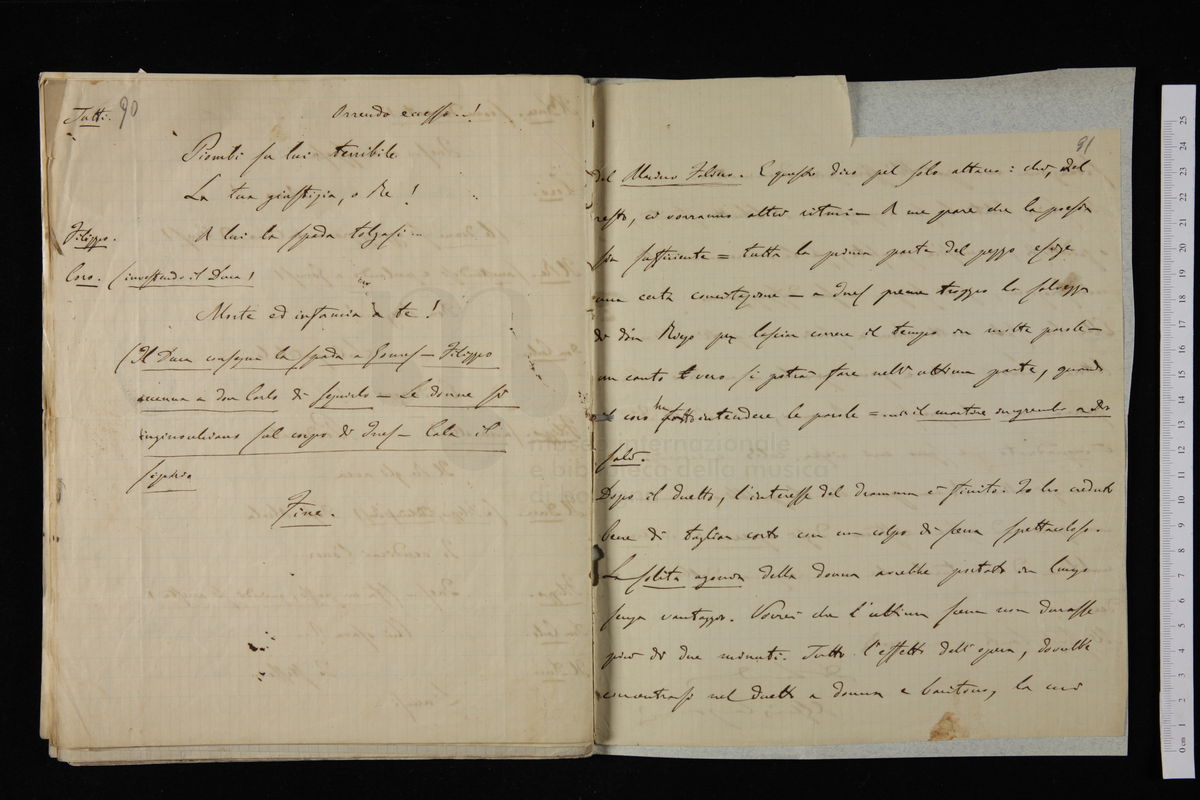 90
Tutti. Orrendo eccesso..!
Piombi su lui terribile
La tua giustizia, o Re!
Filippo. A lui la spada tolgasi...
Coro. (investendo il Duca)
Morte ed infamia a te!
(Il Duca consegna la spada a Gomes – Filippo
accenna a don Carlo di seguirlo – Le donne s'
inginocchiano sul corpo di Ines – Cala il
sipario
Fine.
91
del Marino Faliero. E questo dico pel solo attacco: chè, del
resto, ci vorranno altri ritmi – A me pare che la poesia
sia sufficiente = tutta la prima parte del pezzo esige
una certa concitazione – a Ines preme troppo la salvezza
di don Rugo per lasciar correre il tempo in molte parole –
un canto vero si potrà fare nell'ultima parte, quando
il coro ha fatto intendere le parole = il martire in grembo a Dio
salì.
Dopo il duetto, l'interesse del dramma è finito: Io ho creduto
bene di tagliar corto con un colpo di scena spettacoloso.
La solita agonia della donna avrebbe portato in lungo
senza vantaggio. Vorrei che l'ultima scena non durasse
più di due minuti. Tutto l'effetto dell'opera, dovrebbe
concentrarsi nel duetto a donna e baritono, la cui
museo internazionale
e biblioteca della musica
25
24
23
22
21
20
19
18
17
16
15
14
13
12
11
10
9
8
7
6
5
4
3
2
1
0 cm